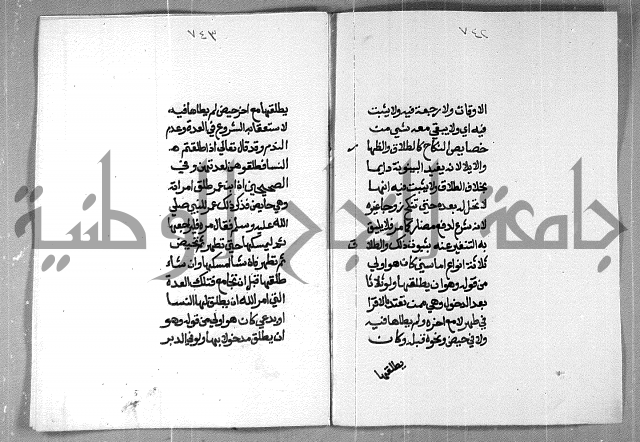 ٧٤٢
الاوقات ولا رجعة فيه ولا يثبت
فيه اي ولا يبقى معه شي من
خصايص النكاح كالطلاق والظهار
والايلا لانه يفيد البينونة دايما
بخلاف الطلاق ولا يثبت فيه انها
لا تحل له بعده حتى تنكح زوجا غيره
لانه شرع لدفع مضار كما مر فلا يليق
به التنفير عنه بثبوت ذلك والطلاق
ثلاثة انواع اما سني كان هو اولى
من قوله وهو ان يطلقها ولو ثلاثا
بعد الدخول وهي ممن تعتد بالاقرا
في طهر لا مع اخره ولم يطاها فيه
ولا في حيض ونحوه قبله وكان
يطلقها
٧٤٣
يطلقها مع اخر حيض لم يطاها فيه
لاستعقابه الشروع في العدة وعدم
الندم وقد قال تعالى اذا طلقتم
النسا فطلقوهن لعدتهن وفي
الصحيحين ان ابن عمر طلق امراته
وهي حايض فذكر ذلك عمر للنبي صلى
الله عليه وسلم فقال مره فليراجعها
ثم ليمسكها حتى تطهر ثم تحيض
ثم تطهر فان شا امسكها وان شا
طلقها قبل ان يجامع فتلك العدة
التي امر الله ان يطلق لها النسا
او بدعي كان هو اولى من قوله وهو
ان يطلق مدخولا بها ولو في الدبر
جامعة النجاح الوطنية